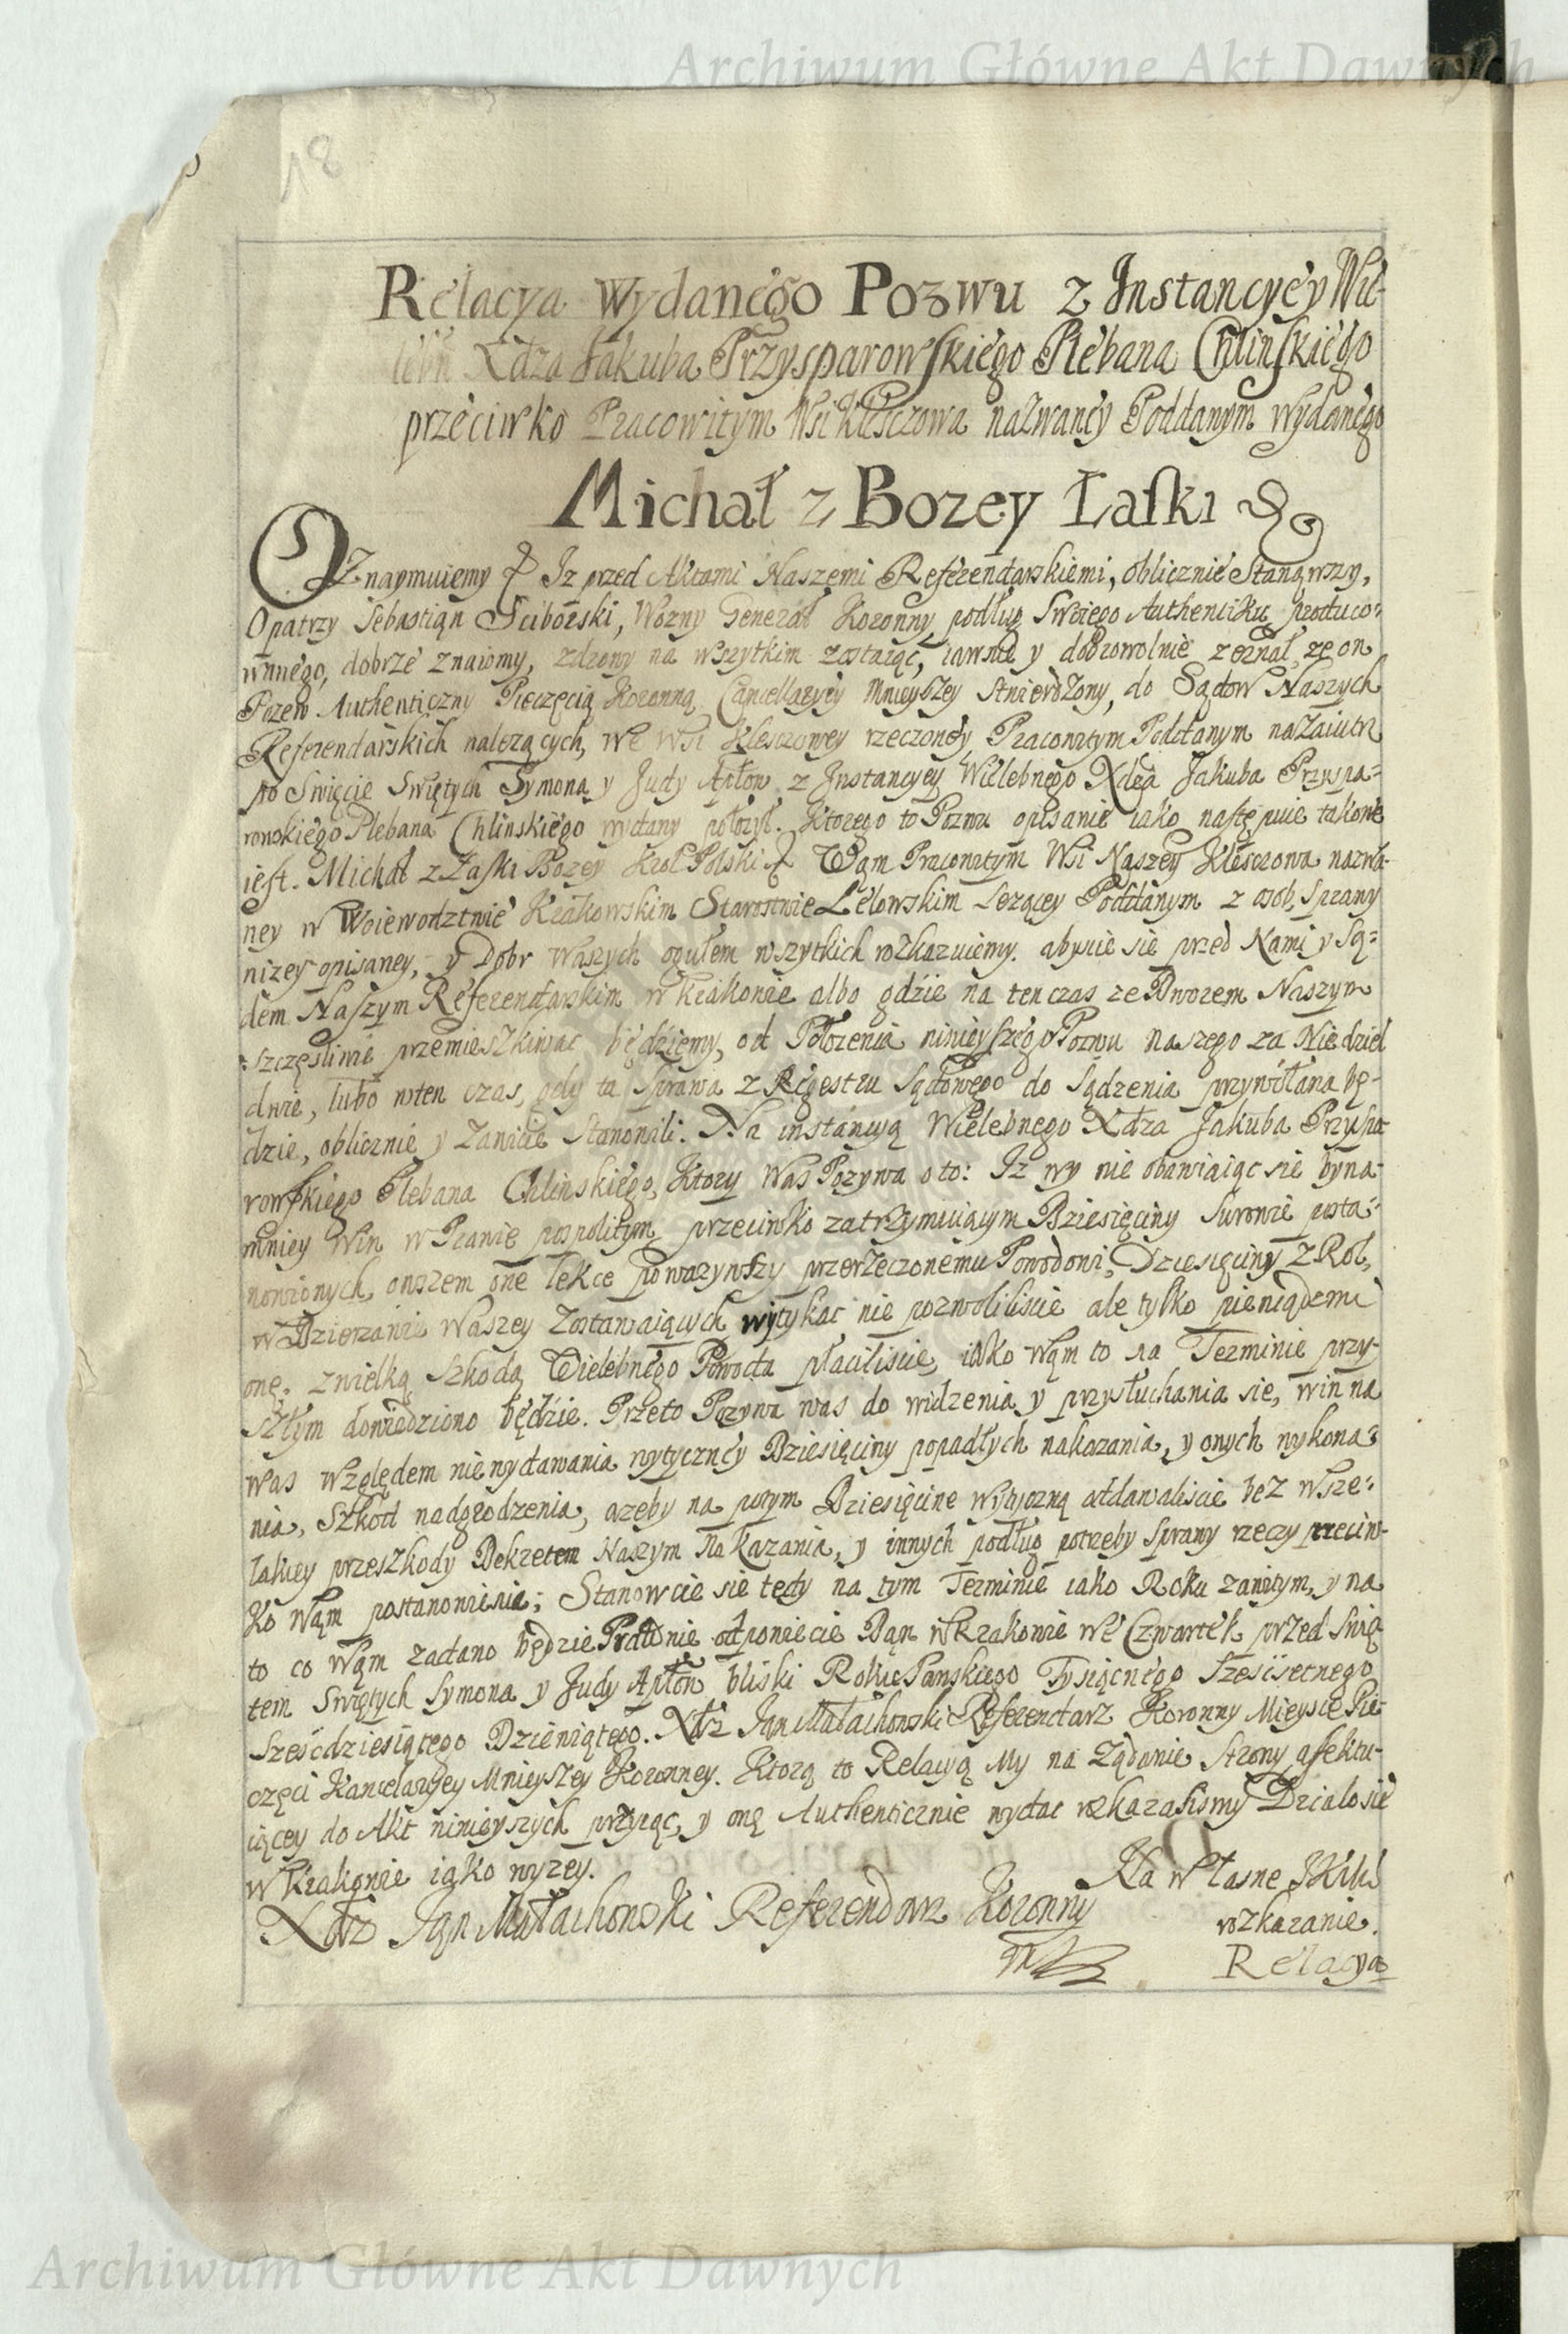 Archiwum Główne Akt Dawnych
18
Relacya Wydanego Pozwu z Instancyey Wie-
lebn Xdza Jakuba Przysparowskiego Plebana Chlinskiego
przeciwko Pracowitym Wsi Klesczowa nazwaney Poddanym wydanego
Michał z Bozey Łaski &
Oznaymuiemy & Iz przed Aktami Naszemi Referendarskiemi, oblicznie Stanąwszy,
Opatrzny Sebastian Sciborski, Wozny Generał Koronny podług Swoiego Authentiku produco-
wanego, dobrze znaiomy, zdrowy na wszytkim zostaiąc, iawnie y dobrowolnie zeznał, ze on
Pozew Authentyczny Pieczęcią Koronną Cancellaryey Mnieyszey Stwierdzony, do Sądow Naszych
Referendarskich nalezących, we Wsi Klesczowey rzeczoney Pracowitym Poddanym nazaiutrz
po Swięcie Swiętych Symona y Judy Aplow z Instancyey Wielebnego Xdza Jakuba Przyspa=
rowskiego Plebana Chlinskiego wydany połozył. Ktorego to Pozwu opisanie iako następuie takowe
iest. Michał z Łaski Bozey Krol Polski & Wąm Pracowitym Wsi Naszey Klesczowa nazwa-
ney w Woiewodztwie Krakowskim Starostwie Lelowskim lezącey Poddanym z osob, Sprawy
nizey opisaney, y Dobr Waszych ogułem wszytkich rozkazuiemy. abyscie sie przed Nami y Są=
dem Naszym Referendarskim w Krakowie albo gdzie na ten czas ze Dworem Naszym
szczęsliwie przemieszkiwac będziemy, od Połozenia ninieyszego Pozwu naszego za Niedziel
dwie, lubo wten czas, gdy ta Sprawa z Regestru Sądowego do Sądzenia przywołana bę-
dzie, oblicznie y zawicie Stanowili. Na instancyą Wielebnego Xdza Jakuba Przyspa
rowskiego Plebana Chlinskiego, Ktory Was Pozywa o to: Iz wy nie obawiaiąc sie byna-
mniey Win w Prawie pospolitym przeciwko zatrzymuiącym Dziesięciny Surowie posta=
nowionych, owszem one lekce powazywszy przerzeczonemu Powodowi, Dziesięciny z Rol,
w Dzierzawie Waszey Zostawaiących wytykac nie pozwoliliscie ale tylko pieniądzmi
onę. z wielką Szkodą Wielebnego Powoda płaciliscie, iako wąm to na Terminie przy-
szłym dowiedziono będzie. Przeto Pozywa was do widzenia y przysłuchania sie, win na
was względem niewydawania wytyczney Dziesięciny popadłych nakazania, y onych wykona=
nia, Szkod nadgrodzenia, azeby na potym Dziesięcine wytyczną oddawaliscie bez wsze=
lakiey przeszkody Dekretem Naszym Nakazania, y innych podług potrzeby Sprawy rzeczy przeciw-
ko Wąm postanowienia; Stanowcie sie tedy na tym Terminie iako Roku zawitym, y na
to co Wąm zadano będzie Prawnie odpowiecie Dąn w Krakowie we Czwartek przed Swię
tem Swiętych Symona y Judy Aplow bliski Roku Panskiego Tysiącnego Szescsetnego
Szescdziesiątego Dziewiątego. Xdz Jan Małachowski Referendarz Koronny Mieysce Pie
częci Kancelaryey Mnieyszey Koronney. Ktorą to Relacyą My na Ządanie Strony afektu-
iącey do Akt ninieyszych przyiąc, y onę Authentycznie wydac rozkazalismy Działo sie
w Krakowie iako wyzey.
Na własne JKMci
Xdz Jan Małachowski Referendarz Koronny
rozkazanie.
Relacya
Archiwum Główne Akt Dawnych